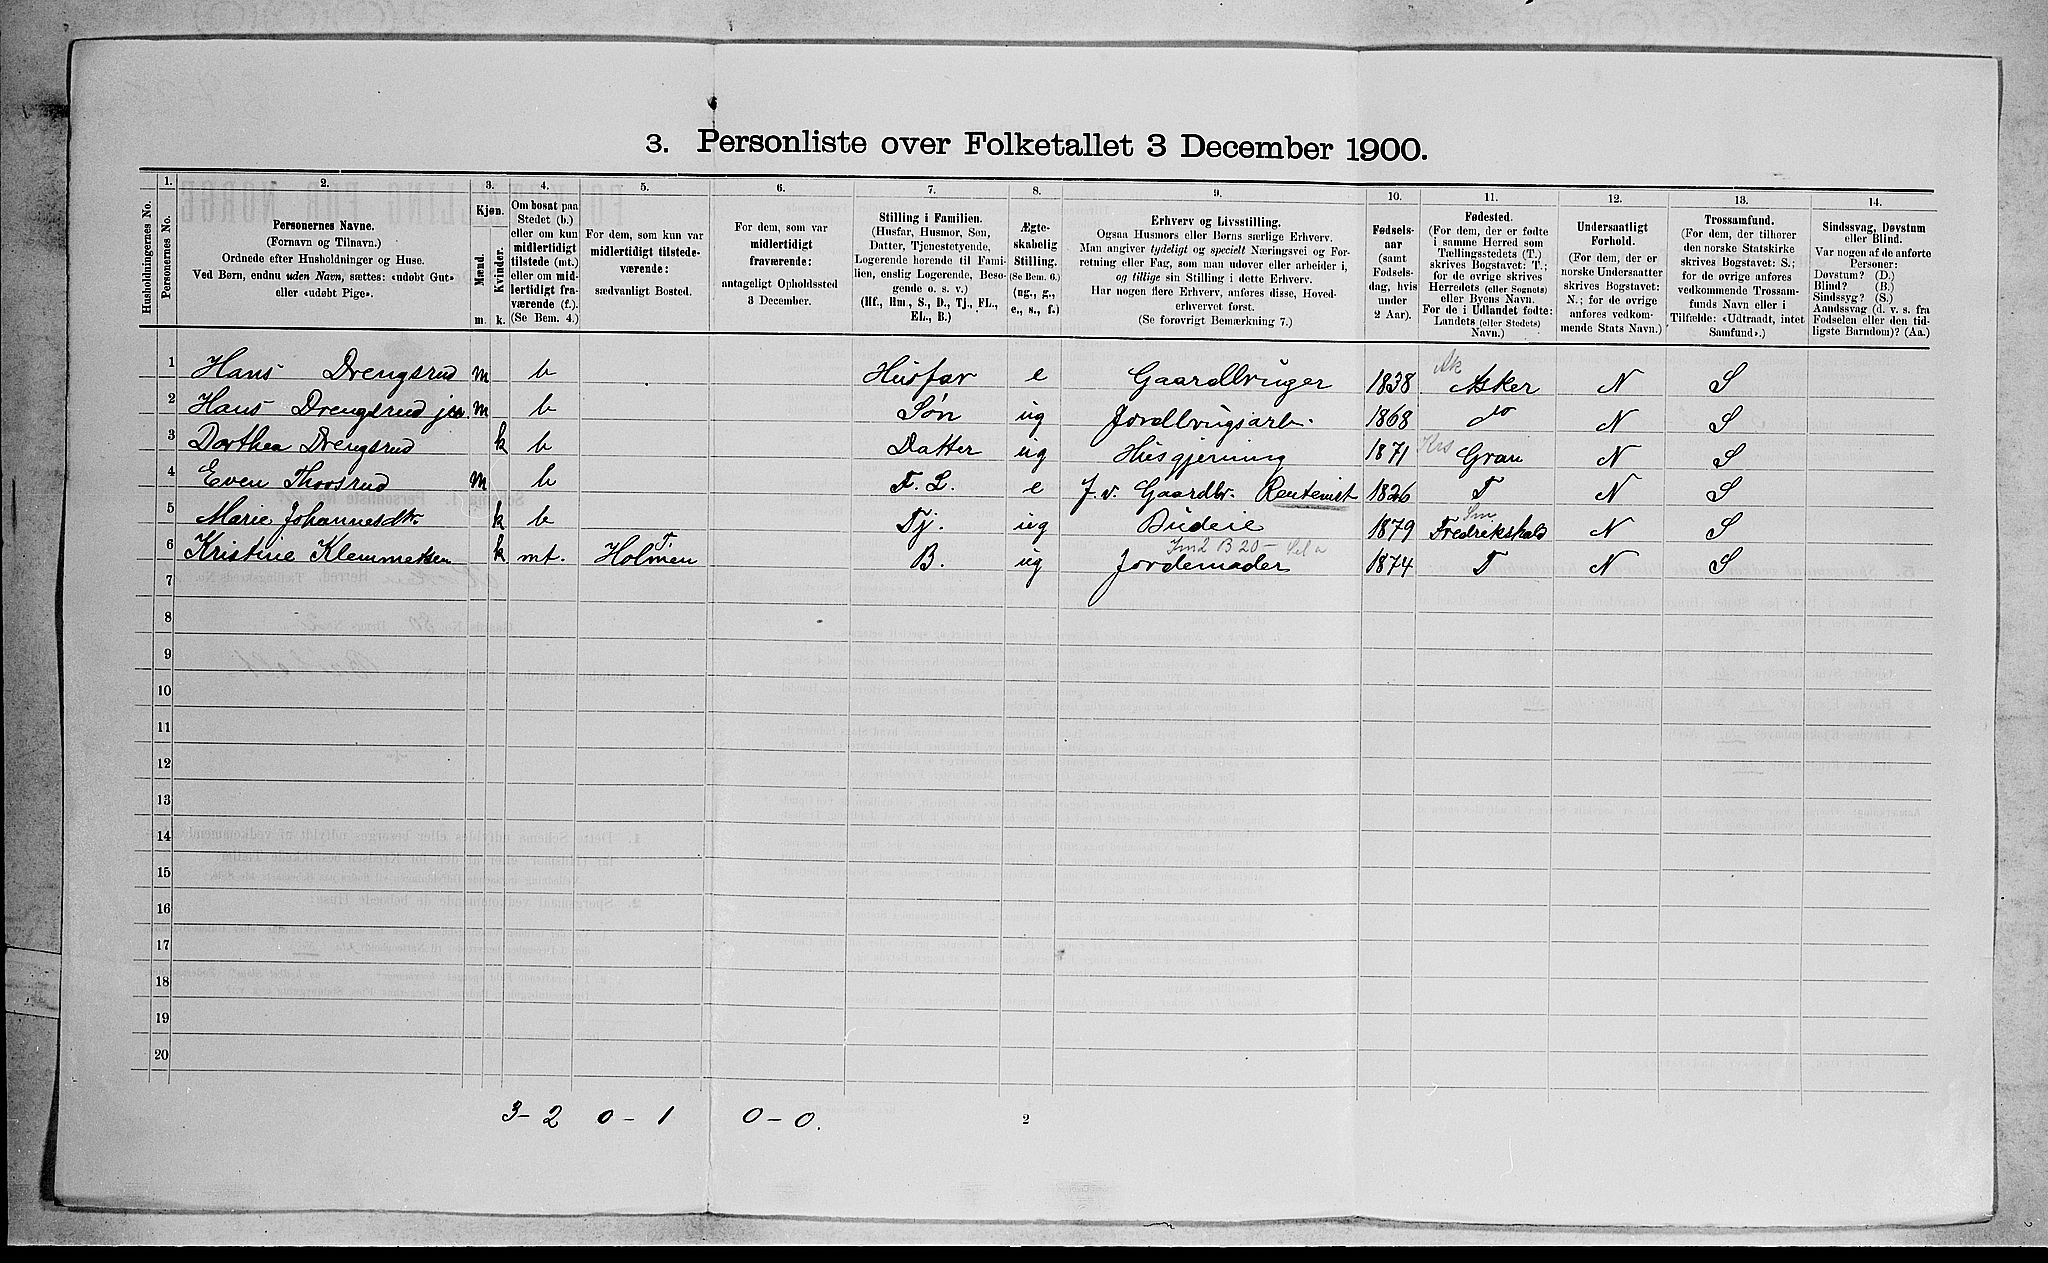 3. Personliste over Folketallet 3 December 1900.
1. 2. 3. 4. 5. 6. 7. 8. 9. 10. 11. 12. 13. 14.
Husholdningernes No.
Personernes No.
Personernes Navne.
(Fornavn og Tilnavn.)
Ordnede efter Husholdninger og Huse.
Ved Børn, endnu uden Navn, sættes: «udøbt Gut»
eller «udøbt Pige».
Kjøn.
Mænd. Kvinder.
m. k.
Om bosat paa
Stedet (b.)
eller om kun
midlertidigt
tilstede (mt.)
eller om mid-
lertidigt fra-
værende (f.).
(Se Bem. 4.)
For dem, som kun var
midlertidigt tilstede-
værende:
sædvanligt Bosted.
For dem, som var
midlertidigt
fraværende:
antageligt Opholdssted
3 December.
Stilling i Familien.
(Husfar, Husmor, Søn,
Datter, Tjenestetyende,
Logerende hørende til Fami-
lien, enslig Logerende, Besø-
gende o. s. v.)
(Hf., Hm., S., D., Tj., FL.,
EL., B.)
Ægte-
skabelig
Stilling.
(Se Bem. 6.)
(ug., g.,
e., s., f.)
Erhverv og Livsstilling.
Ogsaa Husmors eller Børns særlige Erhverv.
Man angiver tydeligt og specielt Næringsvei og For-
retning eller Fag, som man udøver eller arbeider i,
og tillige sin Stilling i dette Erhverv.
Har nogen flere Erhverv, anføres disse, Hoved-
erhvervet først.
(Se forøvrigt Bemærkning 7.)
Fødsels-
aar
(samt
Fødsels-
dag, hvis
under
2 Aar).
Fødested.
(For dem, der er fødte
i samme Herred som
Tællingsstedets (T.)
skrives Bogstavet: T.;
for de øvrige skrives
Herredets (eller Sognets)
eller Byens Navn.
For de i Udlandet fødte:
Landets (eller Stedets)
Navn.)
Undersaatligt
Forhold.
(For dem, der er
norske Undersaatter
skrives Bogstavet:
N.; for de øvrige
anføres vedkom-
mende Stats Navn.)
Trossamfund.
(For dem, der tilhører
den norske Statskirke
skrives Bogstavet: S.;
for de øvrige anføres
vedkommende Trossam-
funds Navn eller i
Tilfælde: «Udtraadt, intet
Samfund».)
Sindssvag, Døvstum
eller Blind.
Var nogen af de anførte
Personer:
Døvstum? (D.)
Blind? (B.)
Sindssyg? (S.)
Aandssvag (d. v. s. fra
Fødselen eller den tid-
ligste Barndom)? (Aa.)
Ak
1 Hans Drengsrud m b Husfar e Gaardbruger 1838 Asker N S
2 Hans Drengsrud jun m b Søn ug Jordbrugsarb. 1868 do N S
3 Dorthea Drengsrud k b Datter ug Husgjerning 1871 Kris Gran N S
4 Even Thoosrud m b F. L. e F. v. Gaardbr. Rentenist 1826 T N S
Sm
5 Marie Johannesdtr. k b Tj. ug Budeie 1879 Fredrikshald N S
T Sm2 B 20 –
6 Kristine Klemmetsen k mt. Holmen B. ug Jordemoder 1874 T N S
7
8
9
10
11
12
13
14
15
16
17
18
19
20
3 - 2 0 - 1 0 - 0.
2